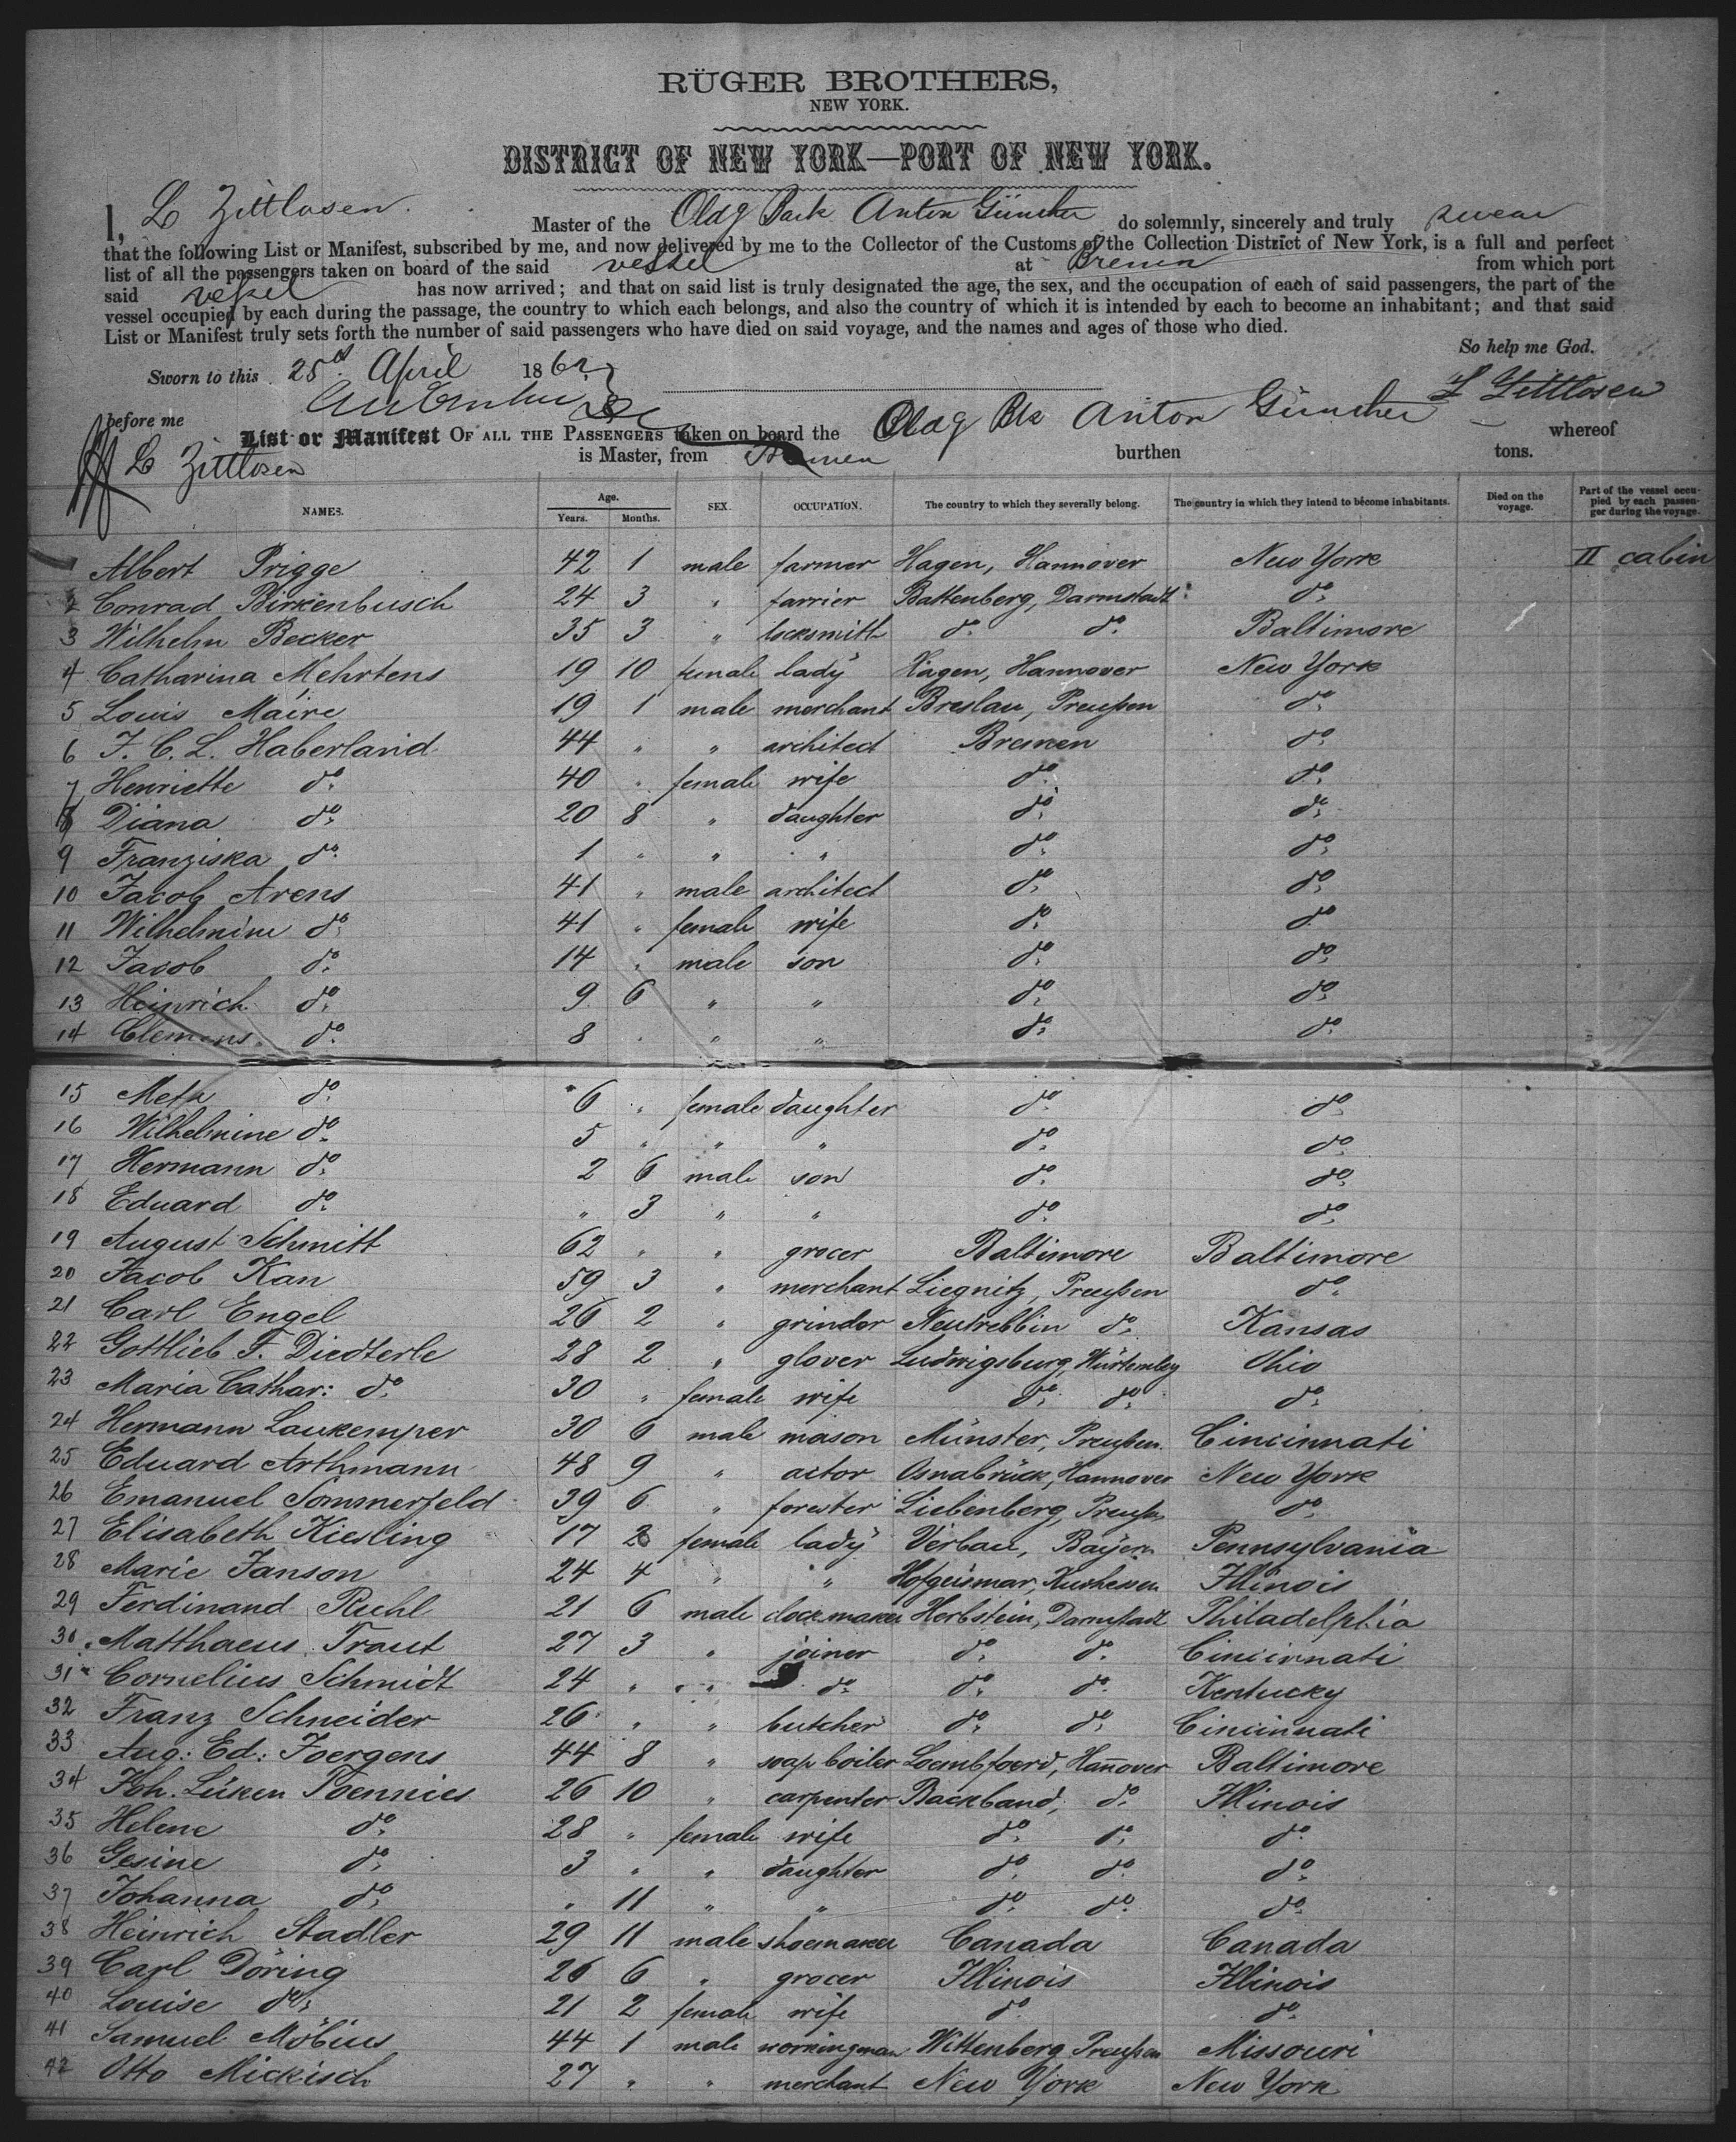 RÜGER BROTHERS,
NEW YORK.
DISTRICT OF NEW YORK—PORT OF NEW YORK.
I, L Zittlosen Master of the Oldg Bark Anton Günther do solemnly, sincerely and truly swear
that the following List or Manifest, subscribed by me, and now delivered by me to the Collector of the Customs of the Collection District of New York, is a full and perfect
list of all the passengers taken on board of the said vessel at Bremen from which port
said vessel has now arrived; and that on said list is truly designated the age, the sex, and the occupation of each of said passengers, the part of the
vessel occupied by each during the passage, the country to which each belongs, and also the country of which it is intended by each to become an inhabitant; and that said
List or Manifest truly sets forth the number of said passengers who have died on said voyage, and the names and ages of those who died.
So help me God.
Sworn to this 25 April 186
L Zittlosen
before me
List or Manifest OF ALL THE PASSENGERS taken on board the Oldg Bk Anton Günther whereof
L Zittlosen is Master, from Bremen burthen tons.
NAMES. Age. Years. Months. SEX. OCCUPATION. The country to which they severally belong. The country in which they intend to become inhabitants. Died on the voyage. Part of the vessel occupied by each passenger during the voyage.
Albert Prigge 42 1 male farmer Hagen, Hannover New York II cabin
2 Conrad Birkenbusch 24 3 " farrier Battenberg, Darmstadt do.
3 Wilhelm Becker 35 3 " locksmith do. do. Baltimore
4 Catharina Mehrtens 19 10 female lady Hagen, Hannover New York
5 Louis Maire 19 1 male merchant Breslau, Preußen do.
6 F. C. L. Haberland 44 " " architect Bremen do.
7 Henriette do. 40 " female wife do. do.
8 Diana do. 20 8 " daughter do. do.
9 Franziska do. 1 " " " do. do.
10 Jacob Arens 41 " male architect do. do.
11 Wilhelmine do. 41 " female wife do. do.
12 Jacob do. 14 " male son do. do.
13 Heinrich do. 9 6 " " do. do.
14 Clemens do. 8 " " " do. do.
15 Meta do. 6 " female daughter do. do.
16 Wilhelmine do. 5 " " " do. do.
17 Hermann do. 2 6 male son do. do.
18 Eduard do. " 3 " " do. do.
19 August Schmitt 62 " " grocer Baltimore Baltimore
20 Jacob Kan 59 3 " merchant Liegnitz, Preußen do.
21 Carl Engel 26 2 " grinder Neutrebbin do. Kansas
22 Gottlieb F. Diedterle 28 2 " glover Ludwigsburg, Würtembg Ohio
23 Maria Cathar: do. 30 " female wife do. do. do.
24 Hermann Laukemper 30 6 male mason Münster, Preußen. Cincinnati
25 Eduard Arthmann 48 9 " actor Osnabrück, Hannover New York
26 Emanuel Sommerfeld 39 6 " forester Liebenberg, Preußen do.
27 Elisabeth Kiesling 17 female lady Verbau, Bayern Pennsylvania
28 Marie Janson 24 4 " " Hofgeismar, Kurhessen Illinois
29 Ferdinand Ruhl 21 6 male clockmaker Herbstein, Darmstadt Philadelphia
30 Matthaeus Traut 27 3 " joiner do. do. Cincinnati
31 Cornelius Schmidt 24 " " do. do. do. Kentucky
32 Franz Schneider 26 " " butcher do. do. Cincinnati
33 Aug: Ed: Joergens 44 8 " soap boiler Loembfoerd, Hañover Baltimore
34 Joh. Lüken Poennies 26 10 " carpenter Backband, do. Illinois
35 Helene do. 28 " female wife do. do. do.
36 Gesine do. 3 " " daughter do. do. do.
37 Johanna do. " 11 " " do. do. do.
38 Heinrich Stadler 29 11 male shoemaker Canada Canada
39 Carl Döring 26 6 " grocer Illinois Illinois
40 Louise do. 21 2 female wife do. do.
41 Samuel Möbius 44 1 male workingman Wittenberg Preußen Missouri
42 Otto Mickisch 27 " " merchant New York New York